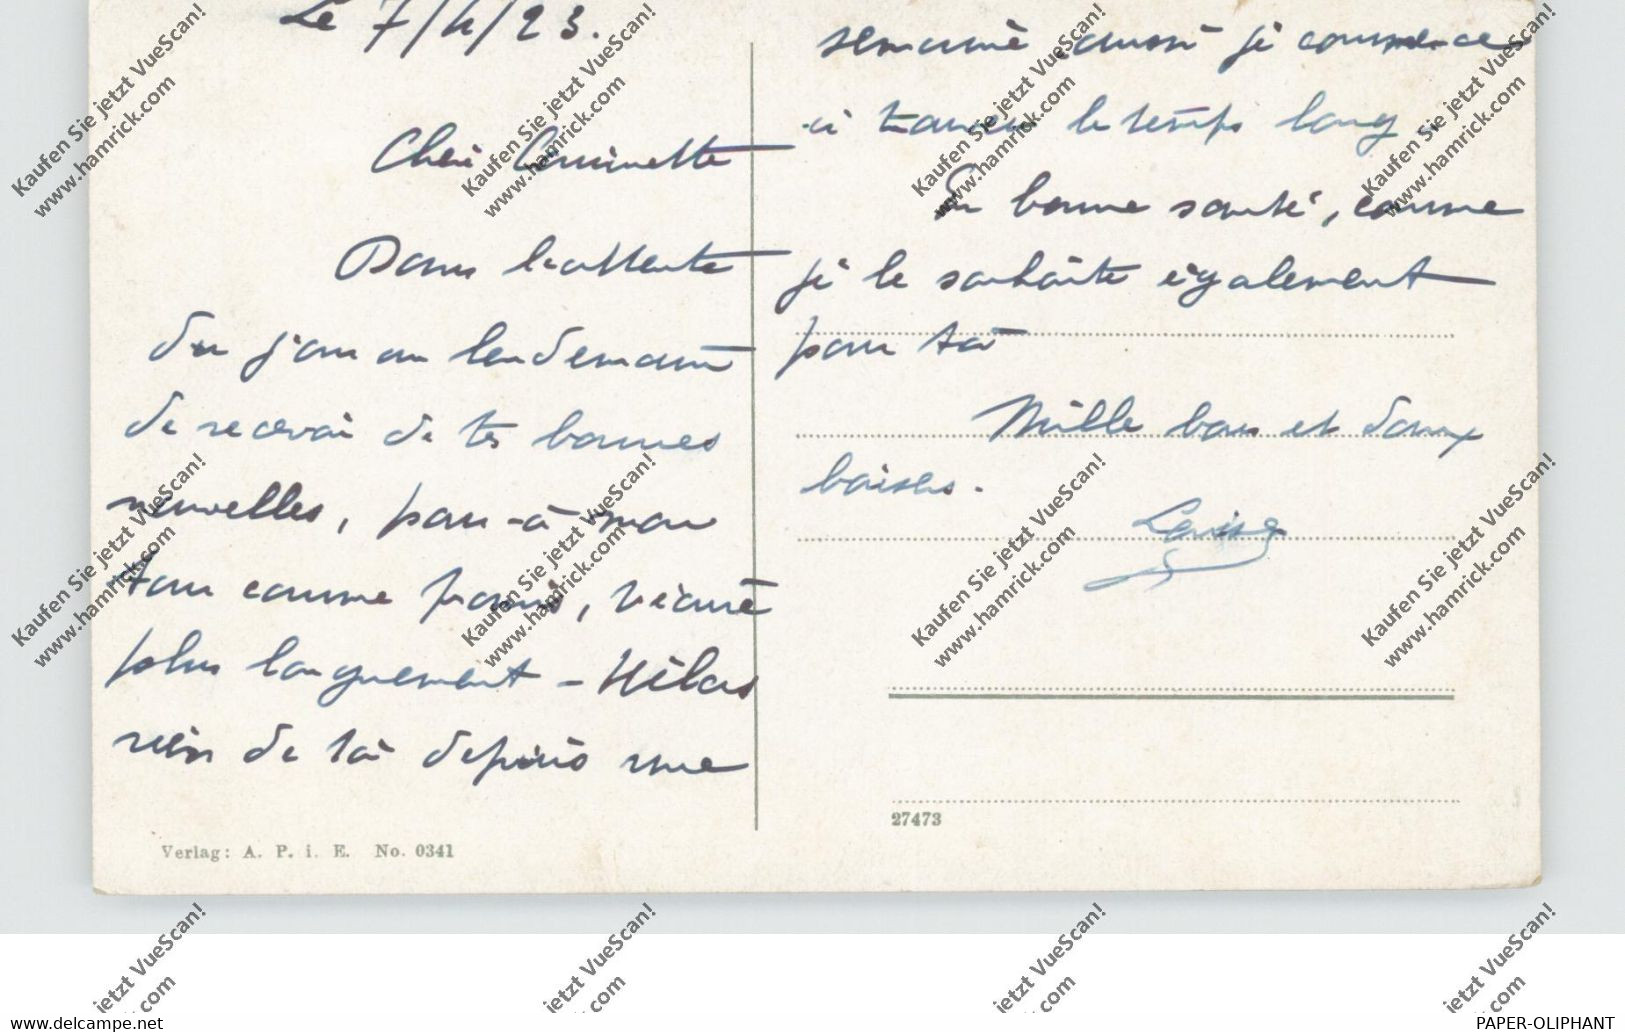 Le 7/4/23.
Chère Cousinette
Dans l'attente
du jour au lendemain
de recevoir de tes bonnes
nouvelles, pour à mon
tour comme promis, t'écrire
plus longuement – Hélas
rien de toi depuis une
semaine, aussi je commence
à trouver le temps long.
En bonne santé, comme
je le souhaite également
pour toi
Mille bons et doux
baisers.
Louise
27473
Verlag: A. P. i. E. No. 0341
Kaufen Sie jetzt VueScan!
www.hamrick.com
www.delcampe.net
PAPER-OLIPHANT